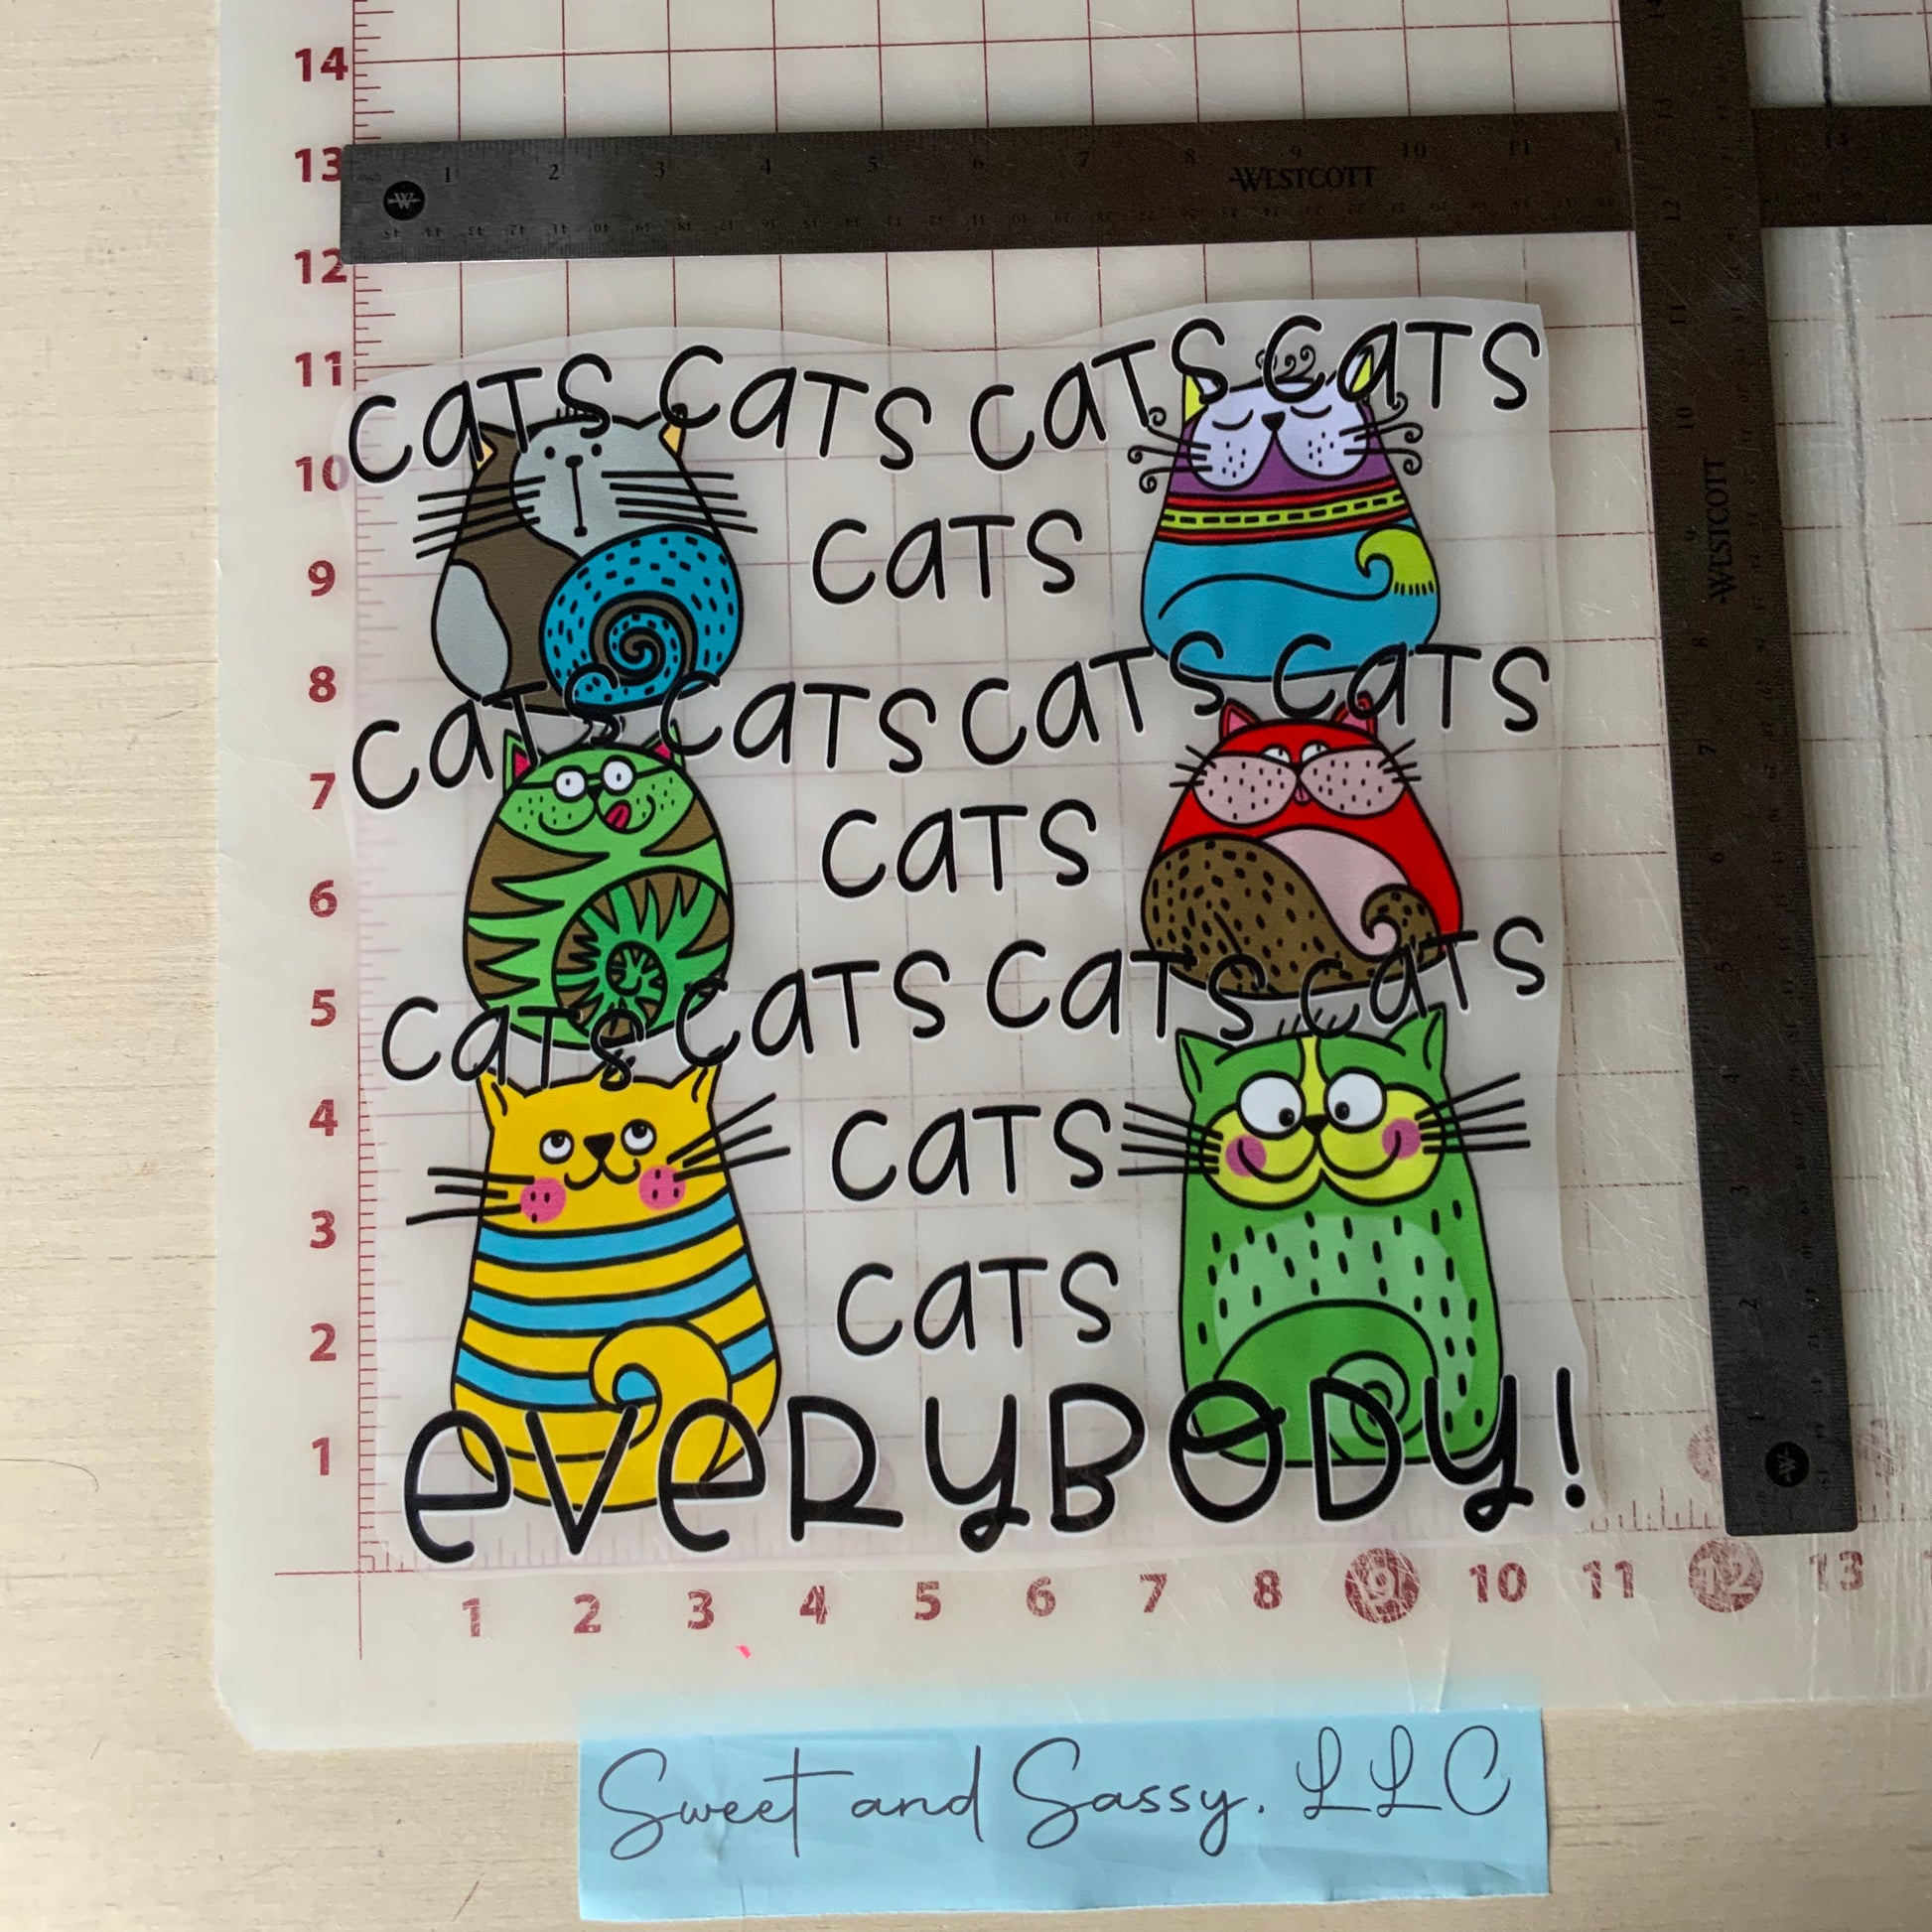 14
13
12
11
10
9
8
7
6
5
4
3
2
1
1 2 3 4 5 6 7 8 9 10 11
WESTCOTT
WESTCOTT
cats cats cats cats
cats
cats cats cats cats
cats
cats cats cats cats
cats
cats
everyBODy!
1 2 3 4 5 6 7 8 9 10 11 12 13
Sweet and Sassy, LLC